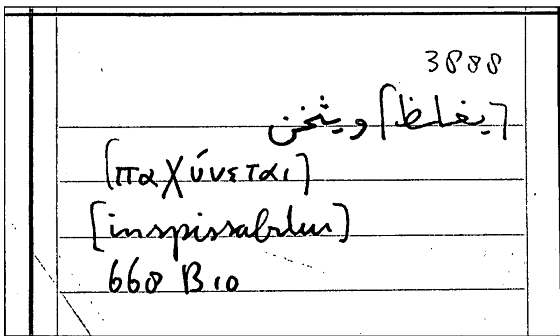 3888
[يغلظ] ويثخن
[παχύνεται]
[inspissabitur]
668 B 10